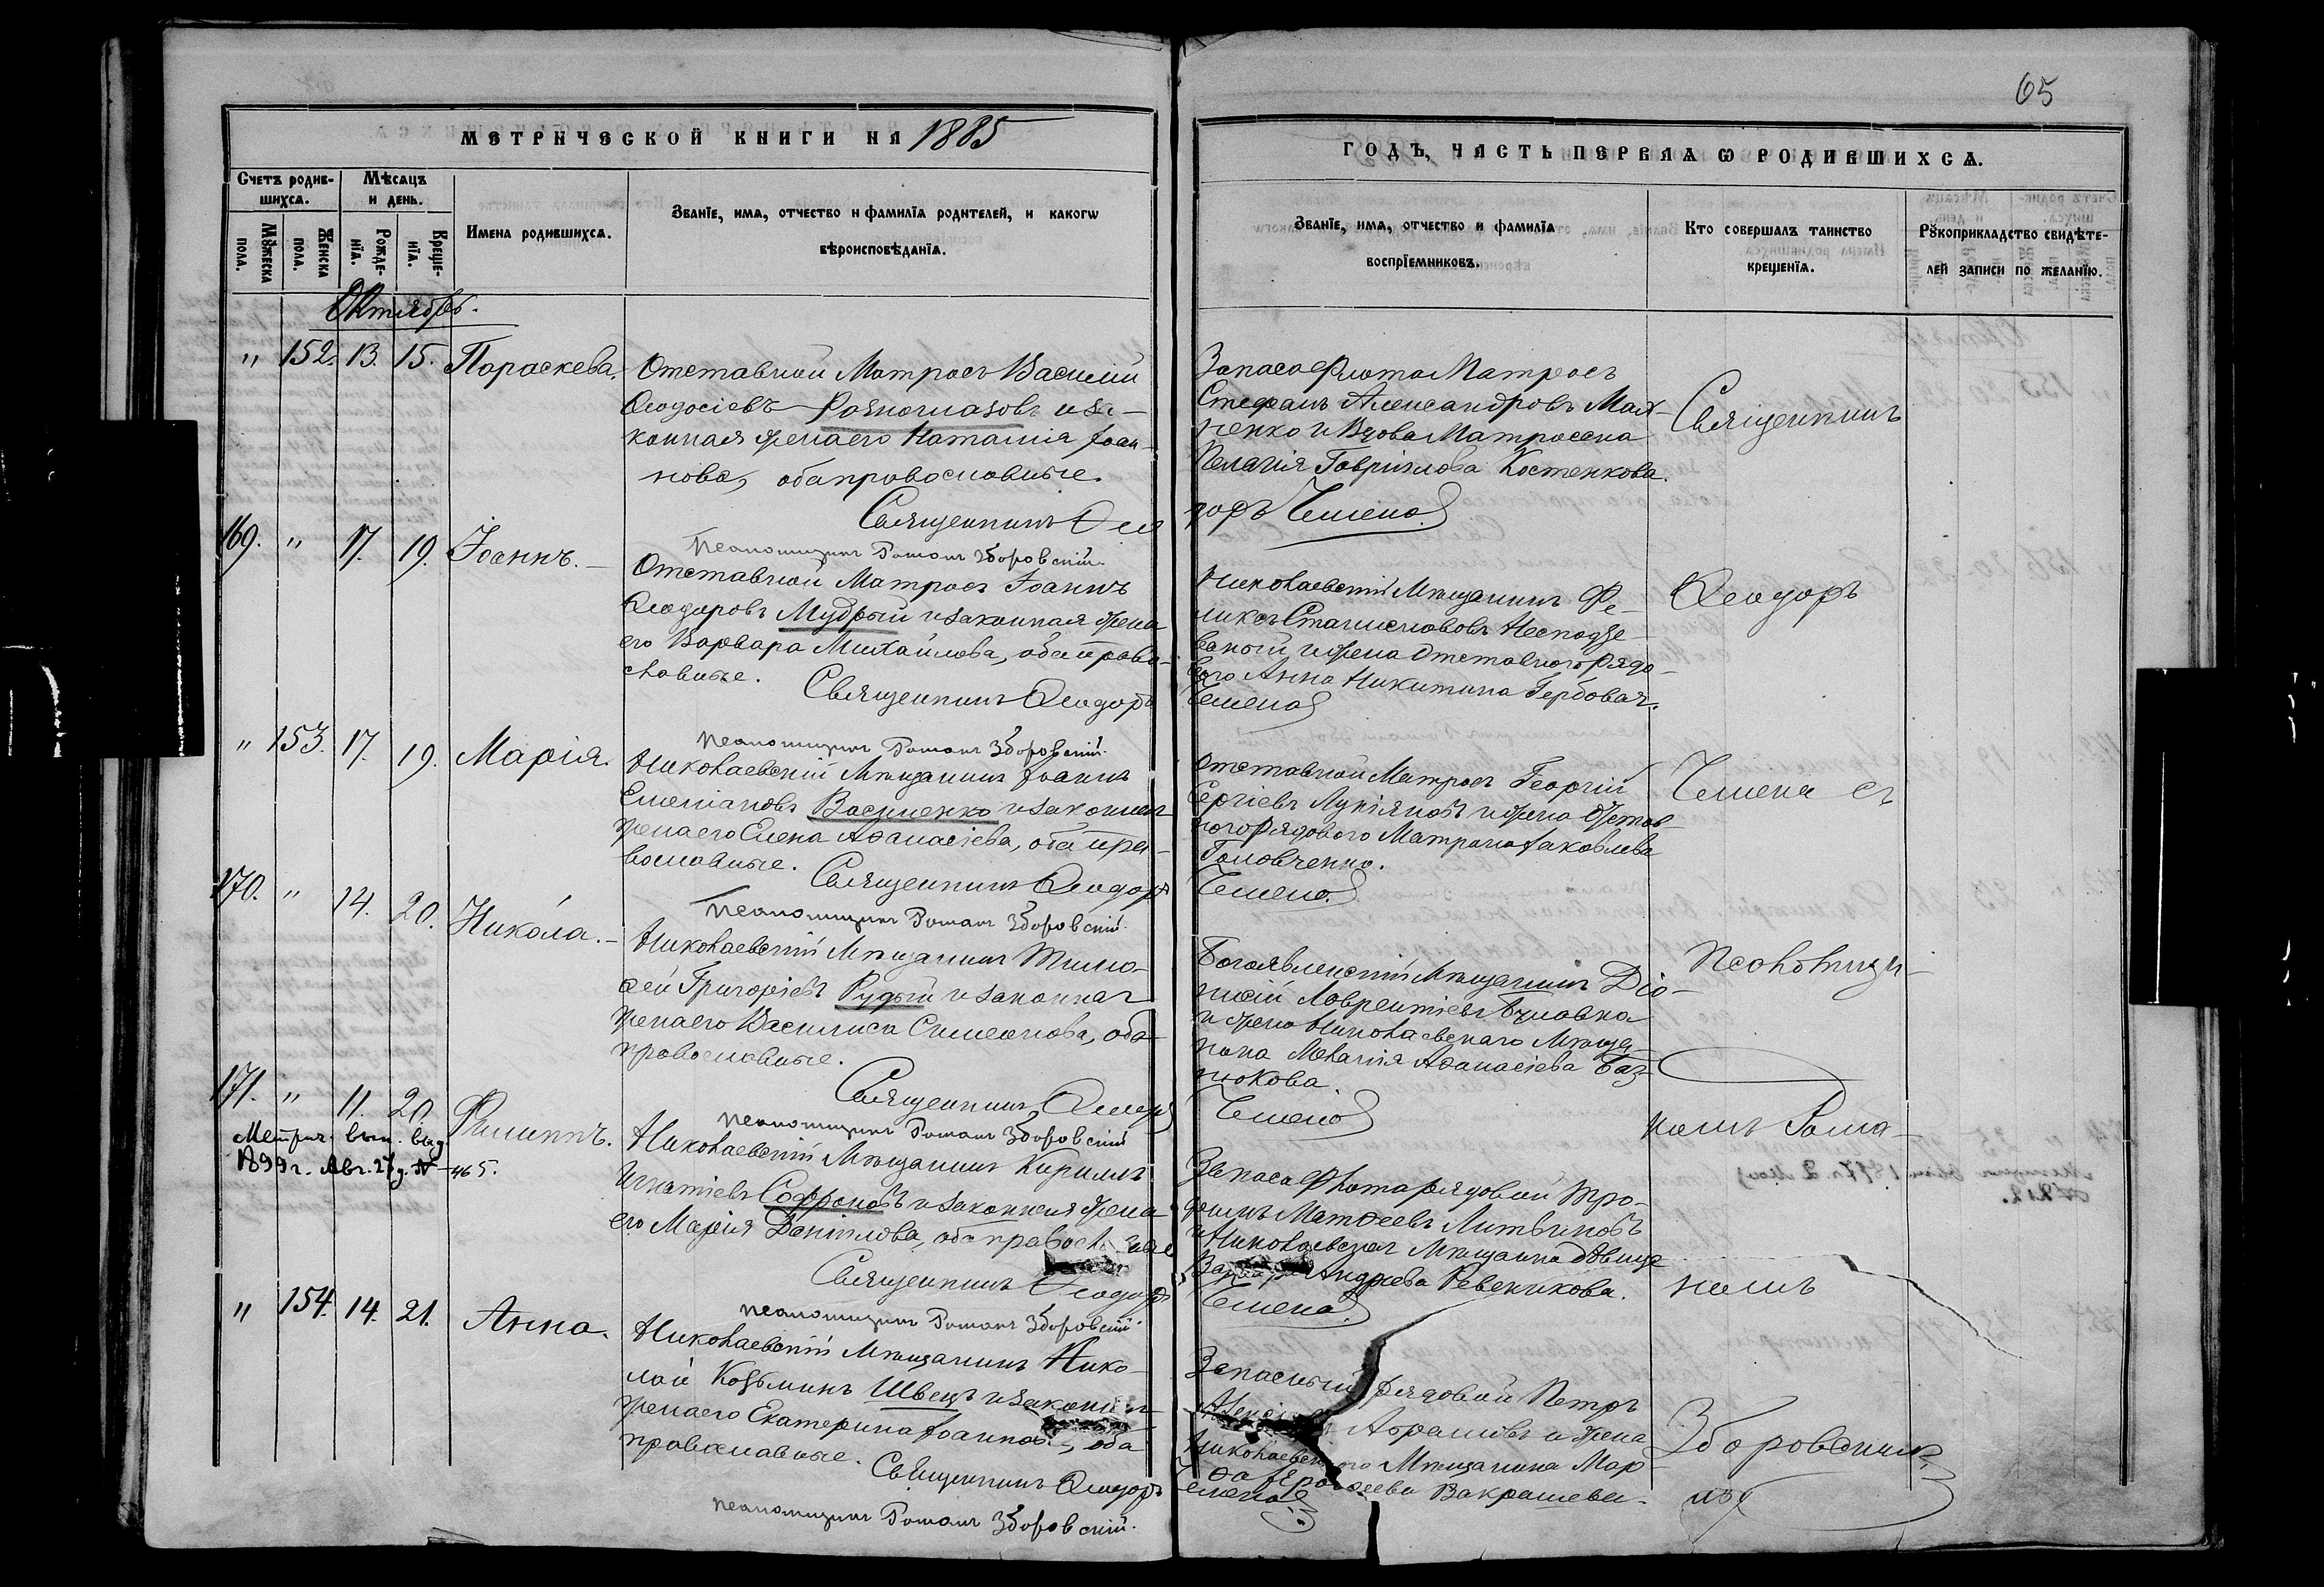 65
МЕТРИЧЕСКОЙ КНИГИ НА 1885
ГОДЪ, ЧАСТЬ ПЕРВАЯ Ѡ РОДИВШИХСѦ.
Счетъ родив-
шихсѧ.
Мѣсѧцъ
и день.
Мꙋжеска
пола.
Женска
пола.
Рожде-
нїѧ.
Креще-
нїѧ.
Имена родившихсѧ.
Званїе, имѧ, отчество и фамилїѧ родителей, и какогѡ
вѣроисповѣданїѧ.
Званїе, имѧ, отчество и фамилїѧ
воспрїемниковъ.
Кто совершалъ таинство
крещенїѧ.
Рꙋкоприкладство свидѣте-
лей записи по желанїю.
Октябрь.
" 152. 13. 15. Параскева.
Отставной Матросъ Василій
Ѳеодосіевъ и за-
конная жена его Наталія Іоан-
нова, оба православные.
Священникъ Ѳео
Псаломщикъ Романъ Зборовскій.
Запаса Флота Матросъ
Стефанъ Александровъ
ненко и Вдова Матроска
Пелагія Гавріилова Костенкова.
доръ Чемена
Священникъ
169. " 17. 19. Іоаннъ.
Отставной Матросъ Іоаннъ
Ѳеодоровъ Мудрый и законная жена
его Варвара Михайлова, оба право-
славные.
Священникъ Ѳеодоръ
Псаломщикъ Романъ Зборовскій.
Николаевскій Мѣщанинъ Фе-
ликсъ Станиславовъ
и жена Отставного рядо-
вого Анна Никитина Гербовая.
Чемена
Ѳеодоръ
" 153. 17. 19. Марія.
Николаевскій Мѣщанинъ Іоаннъ
Емеліановъ Василенко и законная
жена его Елена Аѳанасіева, оба пра-
вославные.
Священникъ Ѳеодоръ
Псаломщикъ Романъ Зборовскій.
Отставной Матросъ Георгій
Сергіевъ Лукіяновъ и жена Отстав-
ного рядового Матрона Іаковлева
Головченко.
Чемена
Чемена съ
170. " 14. 20. Никола.
Николаевскій Мѣщанинъ Тимо-
ѳей Григоріевъ Рудый и законная
жена его Василиса Симеонова, оба
православные.
Священникъ Ѳеодоръ
Псаломщикъ Романъ Зборовскій
Богоявленскій Мѣщанинъ Діо-
нисій Лаврентіевъ
и жена Николаевскаго Мѣща-
нина Меланія Аѳанасіева Баз-
нюкова.
Чемена
Псаломщи-
171. " 11. 20. Филиппъ.
Метрич. вып. выд
1899 г. Авг. 27 д. № 465.
Николаевскій Мѣщанинъ Кириллъ
Игнатіевъ Софроновъ и законная жена
его Марія Даніилова, оба
Священникъ Ѳеодоръ
Псаломщикъ Романъ Зборовскій.
Запаса Флота рядовой Тро-
фимъ Матѳеевъ Литвиновъ
и Николаевская Мѣщанка дѣвица
Андреева Ревенкова.
Чемена
комъ Рома-
номъ
" 154. 14. 21. Анна.
Николаевскій Мѣщанинъ Нико-
лай Козьминъ Швецъ и законная
жена его Екатерина Іоаннова, оба
православные.
Священникъ Ѳеодоръ
Псаломщикъ Романъ Зборовскій.
Запасный рядовой Петръ
Абрамовъ и жена
Николаевского Мѣщанина Мар-
Вакрашева.
Чемена
Зборовским